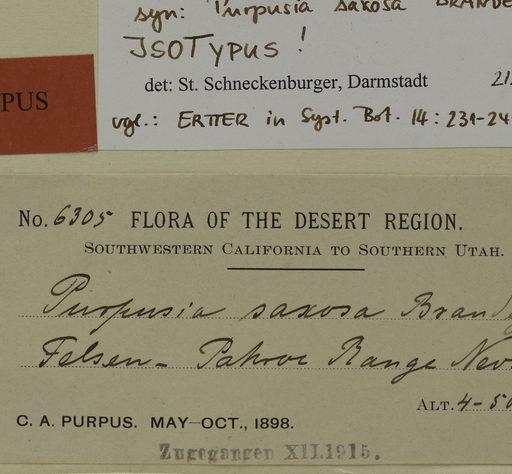 syn: Purpusia saxosa BRANDE
ISOTYPUS !
det: St. Schneckenburger, Darmstadt 21
PUS
vgl.: ERTTER in Syst. Bot. 14: 231-24
No. 6305 FLORA OF THE DESERT REGION.
SOUTHWESTERN CALIFORNIA TO SOUTHERN UTAH.
Purpusia saxosa Brandeg
Felsen - Pahroc Range Nev
ALT. 4-50
C. A. PURPUS. MAY-OCT., 1898.
Zugegangen XII.1915.